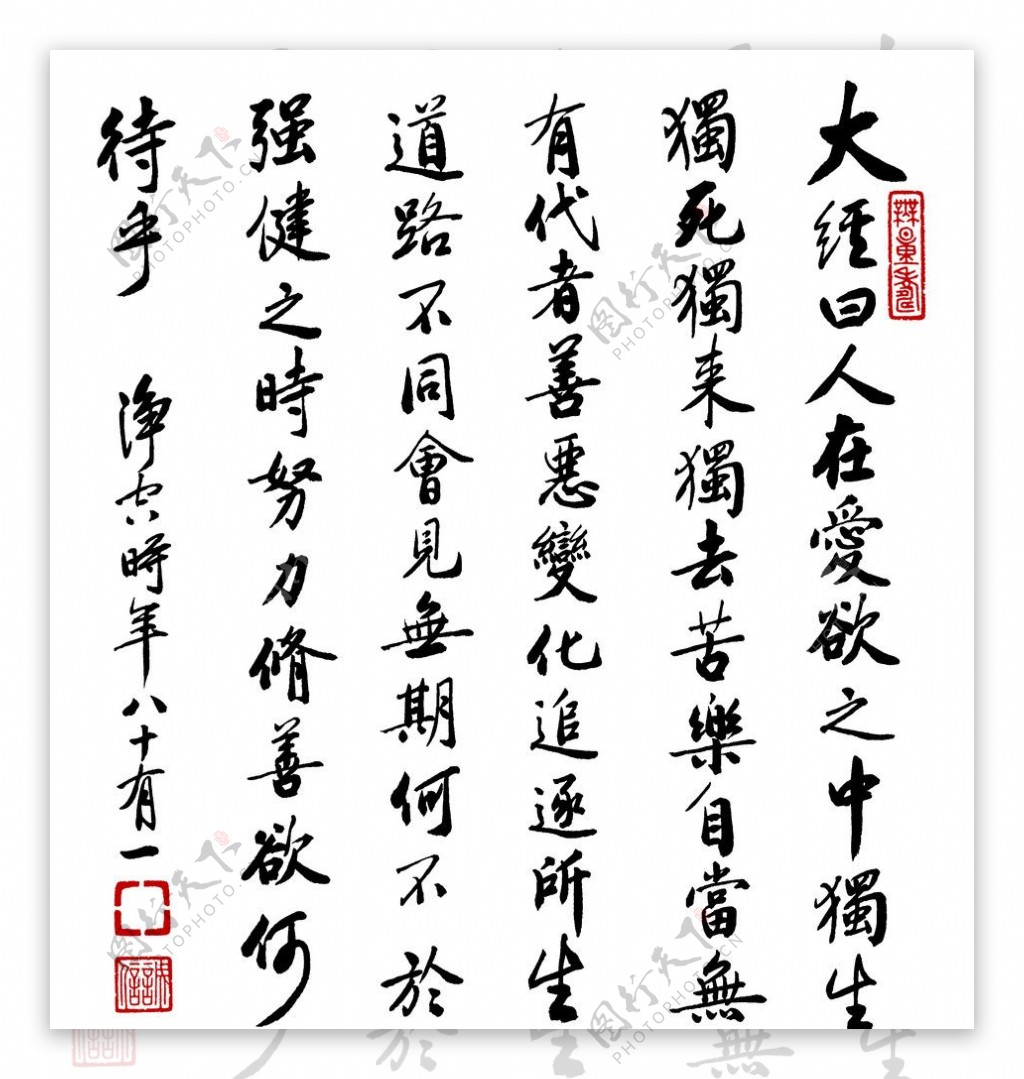 大經曰人在愛欲之中獨生
獨死獨来獨去苦樂自當無
有代者善惡變化追逐所生
道路不同會見無期何不於
强健之時努力脩善欲何
待乎
淨空時年八十有一
图行天下
PHOTOPHOTO.CN